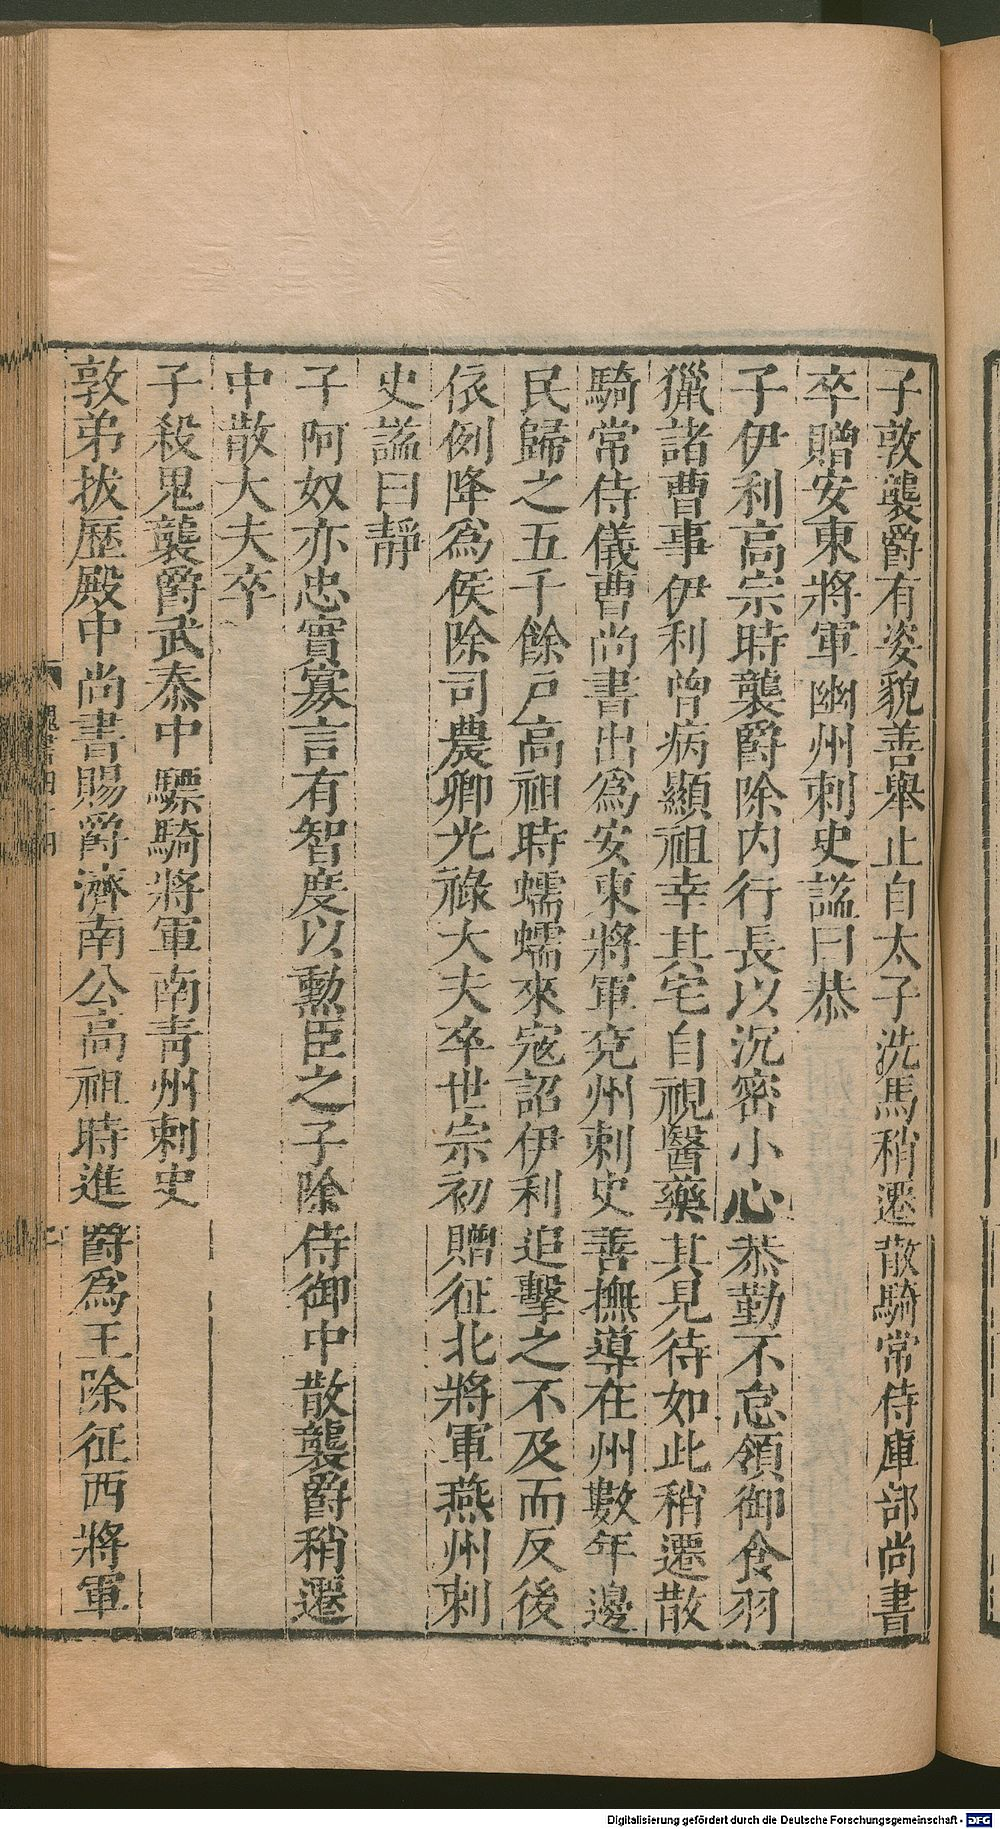 子敦襲爵有姿貌善舉止自太子洗馬稍遷散騎常侍庫部尚書
卒贈安東將軍幽州刺史諡曰恭
子伊利高宗時襲爵除内行長以沉密小心恭勤不怠領御食羽
獵諸曹事伊利曾病顯祖幸其宅自視醫藥其見待如此稍遷散
騎常侍儀曹尚書出為安東將軍兗州刺史善撫導在州數年邊
民歸之五千餘戸高祖時蠕蠕來寇詔伊利追擊之不及而反後
依例降為侯除司農卿光祿大夫卒世宗初贈征北將軍燕州刺
史諡曰靜
子阿奴亦忠實寡言有智度以勲臣之子除侍御中散襲爵稍遷
中散大夫卒
子殺鬼襲爵武泰中驃騎將軍南青州刺史
敦弟拔歷殿中尚書賜爵濟南公高祖時進爵為王除征西將軍
Digitalisierung gefördert durch die Deutsche Forschungsgemeinschaft - DFG